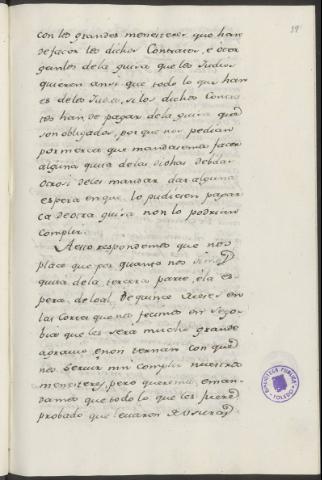 39
con los grandes menesteres que han
de facer los dichos Contratos, e otor
gantes de la guisa que los Judios
quieren ansi que todo lo que han
es de los Judios, si los dichos Contra
tos han de pagar de la guisa que
son obligados, porque nos pedian
por merced que mandasemos facer
alguna quita de las dichas debdas
otrosi deles mandar dar alguna
espera en que lo pudiesen pagar
ca de otra guisa non lo podrian
complir.
A esto respondemos que nos
place que por quanto nos
quita de la tercera parte, e la es
pera de loal, de quince meses en
las Cortes que nos fecimos en Sego
bia que les sera mucho grande
agravio, e non ternan con que
nos servir nin complir nuestros
menesteres, pero queremos, e man
damos que todo lo que les fuere
probado que levaron de usura
BIBLIOTECA PUBLICA
TOLEDO